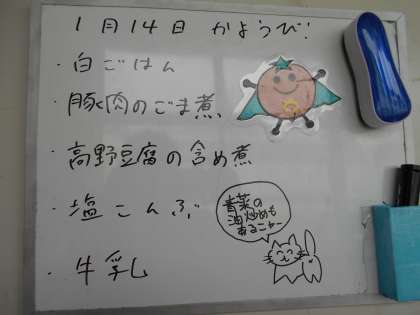 1月14日 かようび!
・白ごはん
・豚肉のごま煮
・高野豆腐の含め煮
・塩こんぶ
青菜の
油炒めも
あるニャー
・牛乳